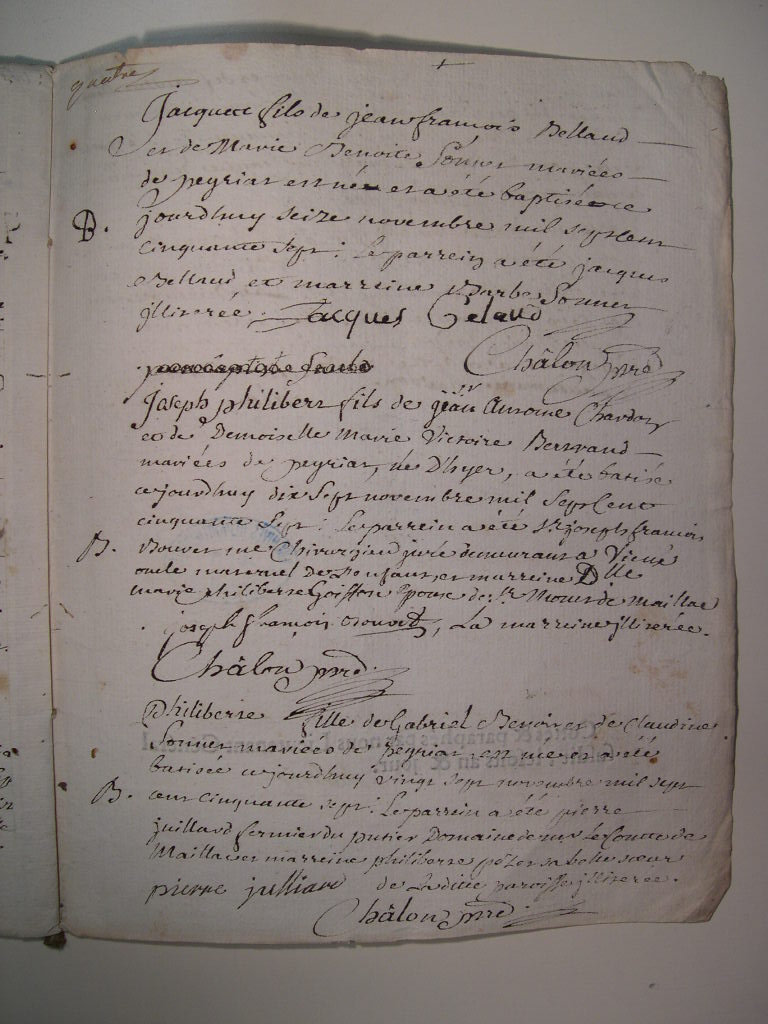 quatre
Jacques fils de jean francois Bellaud
et de Marie Benoite Sonner mariées
de peyriat est née et a été baptisée ce
B. jourdhuy seize novembre mil sept cent
cinquante sept : Le parrein a été jacques
Bellaud et marreine Barbe Sonner
jlliterée. Jacques Belaud
Châlon
Joseph philibert fils de sr jean Antoine Chardon
et de Demoiselle Marie Victoire Bertrand
mariées de peyriat, né D'hyer, a été batisé
cejourdhuy dix sept novembre mil sept cent
cinquante sept : Le parrein a été sr. joseph francois
B. Bouvet me Chirurgien juré demeurant a
oncle maternel de L'enfant, et marreine Dlle
marie philiberte Goiffon epouse de sr. de Maillac
joseph françois Bouvet, La marreine jlliterée.
Châlon
Philiberte fille de Gabriel Benoit et de Claudine
Sonner mariées de Peyriat, est née et a été
batisée cejourdhuy vingt sept novembre mil sept
B. cent cinquante sept : Le parrein a été pierre
juillard fermier du Domaine de mr le Comte de
Maillac et marreine philiberte sa belle soeur
pierre julliard de Ladite paroisse jlliterée.
Châlon